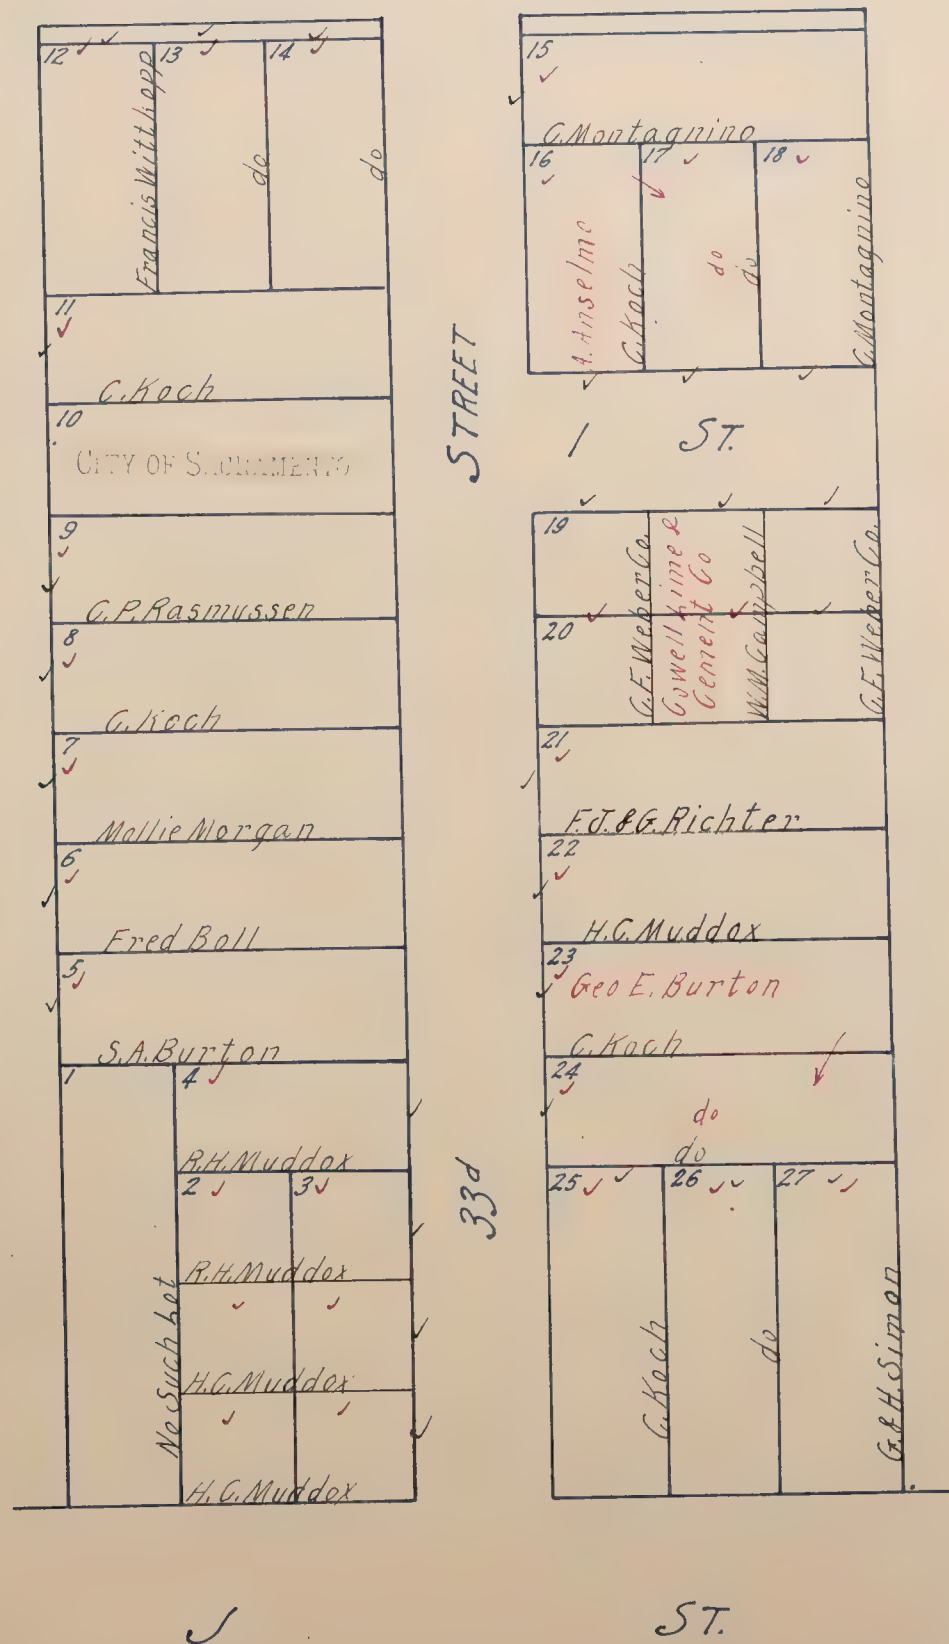 12
Francis Witthopp
13
do
14
do
11
C. Koch
10
CITY OF SACRAMENTO
9
C. P. Rasmussen
8
C. Koch
7
Mollie Morgan
6
Fred Boll
5
S. A. Burton
1
No Such Lot
4
R. H. Muddox
2
3
R. H. Muddox
H. C. Muddox
H. C. Muddox
33d STREET
15
C. Montagnino
16
A. Anselmo
C. Koch
17
do
do
18
C. Montagnino
I ST.
19
20
C. F. Weber Co.
Cowell Lime &
Cement Co
W. M. Campbell
C. F. Weber Co.
21
F. J. & G. Richter
22
H. C. Muddox
23
Geo E. Burton
C. Koch
24
do
do
25
C. Koch
26
do
27
G. & H. Simon
J ST.